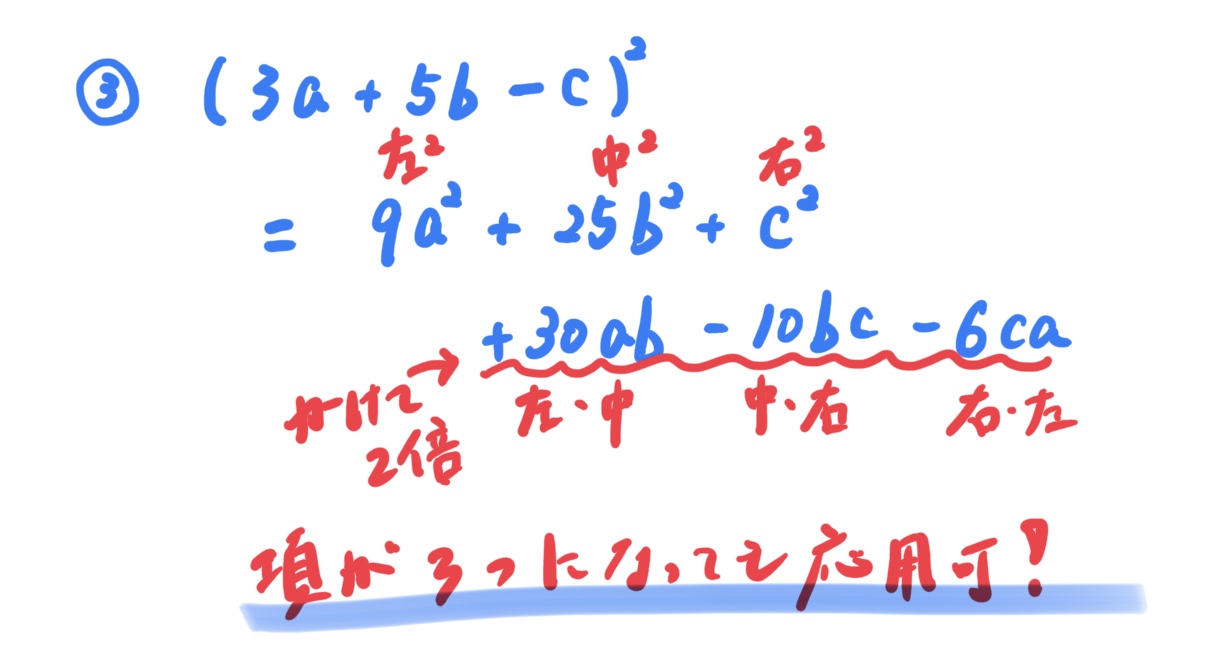 ③ (3a + 5b - c)²
左² 中² 右²
= 9a² + 25b² + c²
+30ab - 10bc - 6ca
かけて
2倍
左・中 中・右 右・左
項が3つになっても応用可!